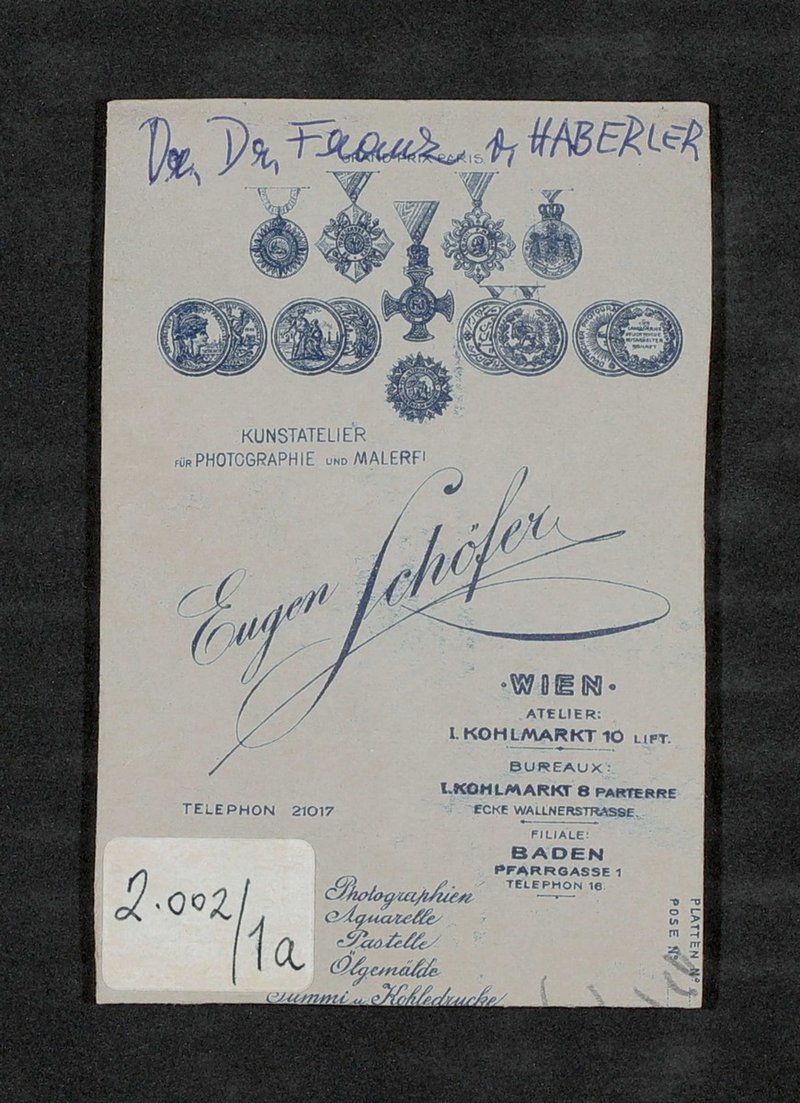 Dr. Dr. Franz v. HABERLER
GRAND PRIX PARIS
KUNSTATELIER
FÜR PHOTOGRAPHIE UND MALEREI
Eugen Schöfer
·WIEN·
ATELIER:
I. KOHLMARKT 10 LIFT.
BUREAUX:
I. KOHLMARKT 8 PARTERRE
ECKE WALLNERSTRASSE.
TELEPHON 21017
FILIALE:
BADEN
PFARRGASSE 1
TELEPHON 16.
Photographien
Aquarelle
Pastelle
Ölgemälde
Gummi u. Kohledrucke
2.002/1a
PLATTEN No
POSE No